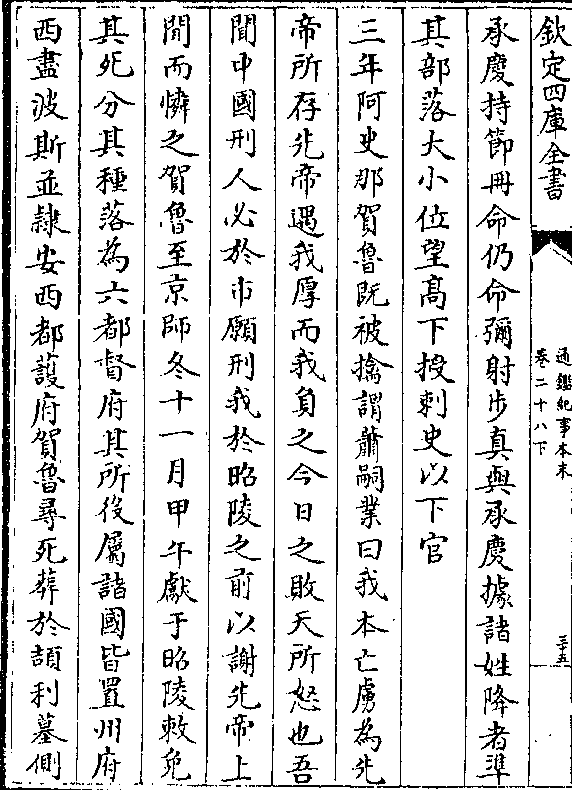 欽定四庫全書
通鑑紀事本末
卷二十八下
三十五
承慶持節冊命仍命彌射步真與承慶據諸姓降者準
其部落大小位望高下授刺史以下官
三年阿史那賀魯既被擒謂蕭嗣業曰我本亡虜為先
帝所存先帝遇我厚而我負之今日之敗天所怒也吾
聞中國刑人必於市願刑我於昭陵之前以謝先帝上
聞而憐之賀魯至京師冬十一月甲午獻于昭陵敕免
其死分其種落為六都督府其所役屬諸國皆置州府
西盡波斯並隸安西都護府賀魯尋死葬於頡利墓側